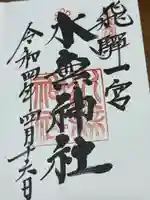 飛騨一宮
水無神社
令和四年四月十六日